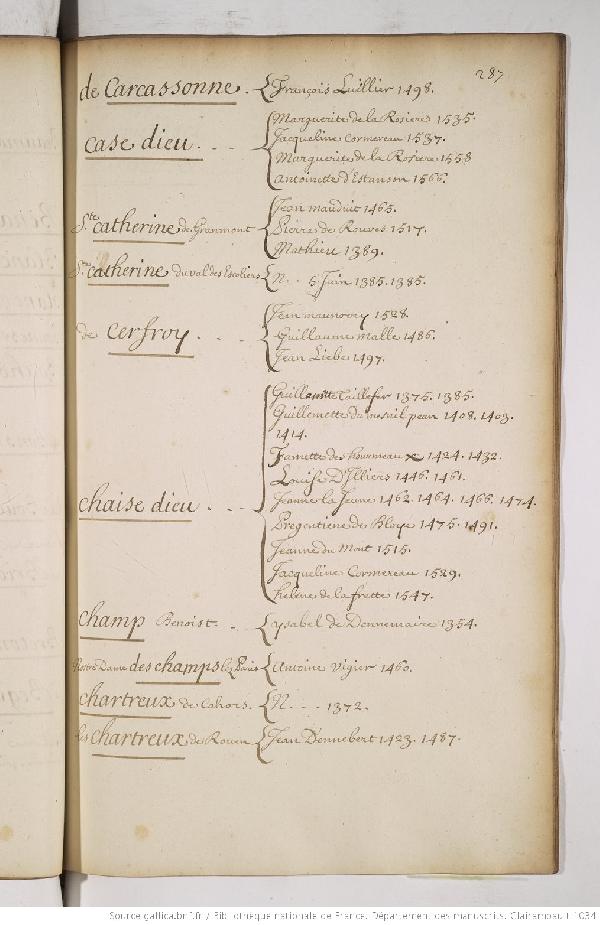 287
de Carcassonne. - { François Luillier 1498.
case dieu. . . - { Marguerite de la Rosieres 1535.
Jacqueline Cormereau 1537.
Marguerite de la Rosiere 1558
Antoinette d'Estanson 1566.
Ste catherine de Granmont - { Jean mauduit 1465.
Pierre de Rouves 1517.
Mathieu 1389.
Ste catherine du val des Escoliers { N. . 6 Juin 1385. 1385.
de Cerfroy. . . - { Jean 1528.
Guillaume malle 1486.
Jean Liebe 1497.
chaise dieu. . . - { Taillefer 1375. 1385.
Guillemette du mesnil pean 1408. 1403.
1414.
de 1424. 1432.
Louise D'Illiers 1446. 1461.
Jeanne la Jeune 1462. 1464. 1466. 1474.
Pregentiene de Bloye 1475. 1491.
Jeanne du Mont 1515.
Jacqueline Cormereau 1529.
helene de la frette 1547.
champ Benoist. . { ysabel de Dennemaire 1354.
Nostre Dame des champs lez Paris { Antoine Vigier 1460.
chartreux de Cahors. { N. - . - 1372.
les chartreux de Rouen { Jean Dennebert 1423. 1487.
Source gallica.bnf.fr / Bibliothèque nationale de France. Département des manuscrits. Clairambault 1034